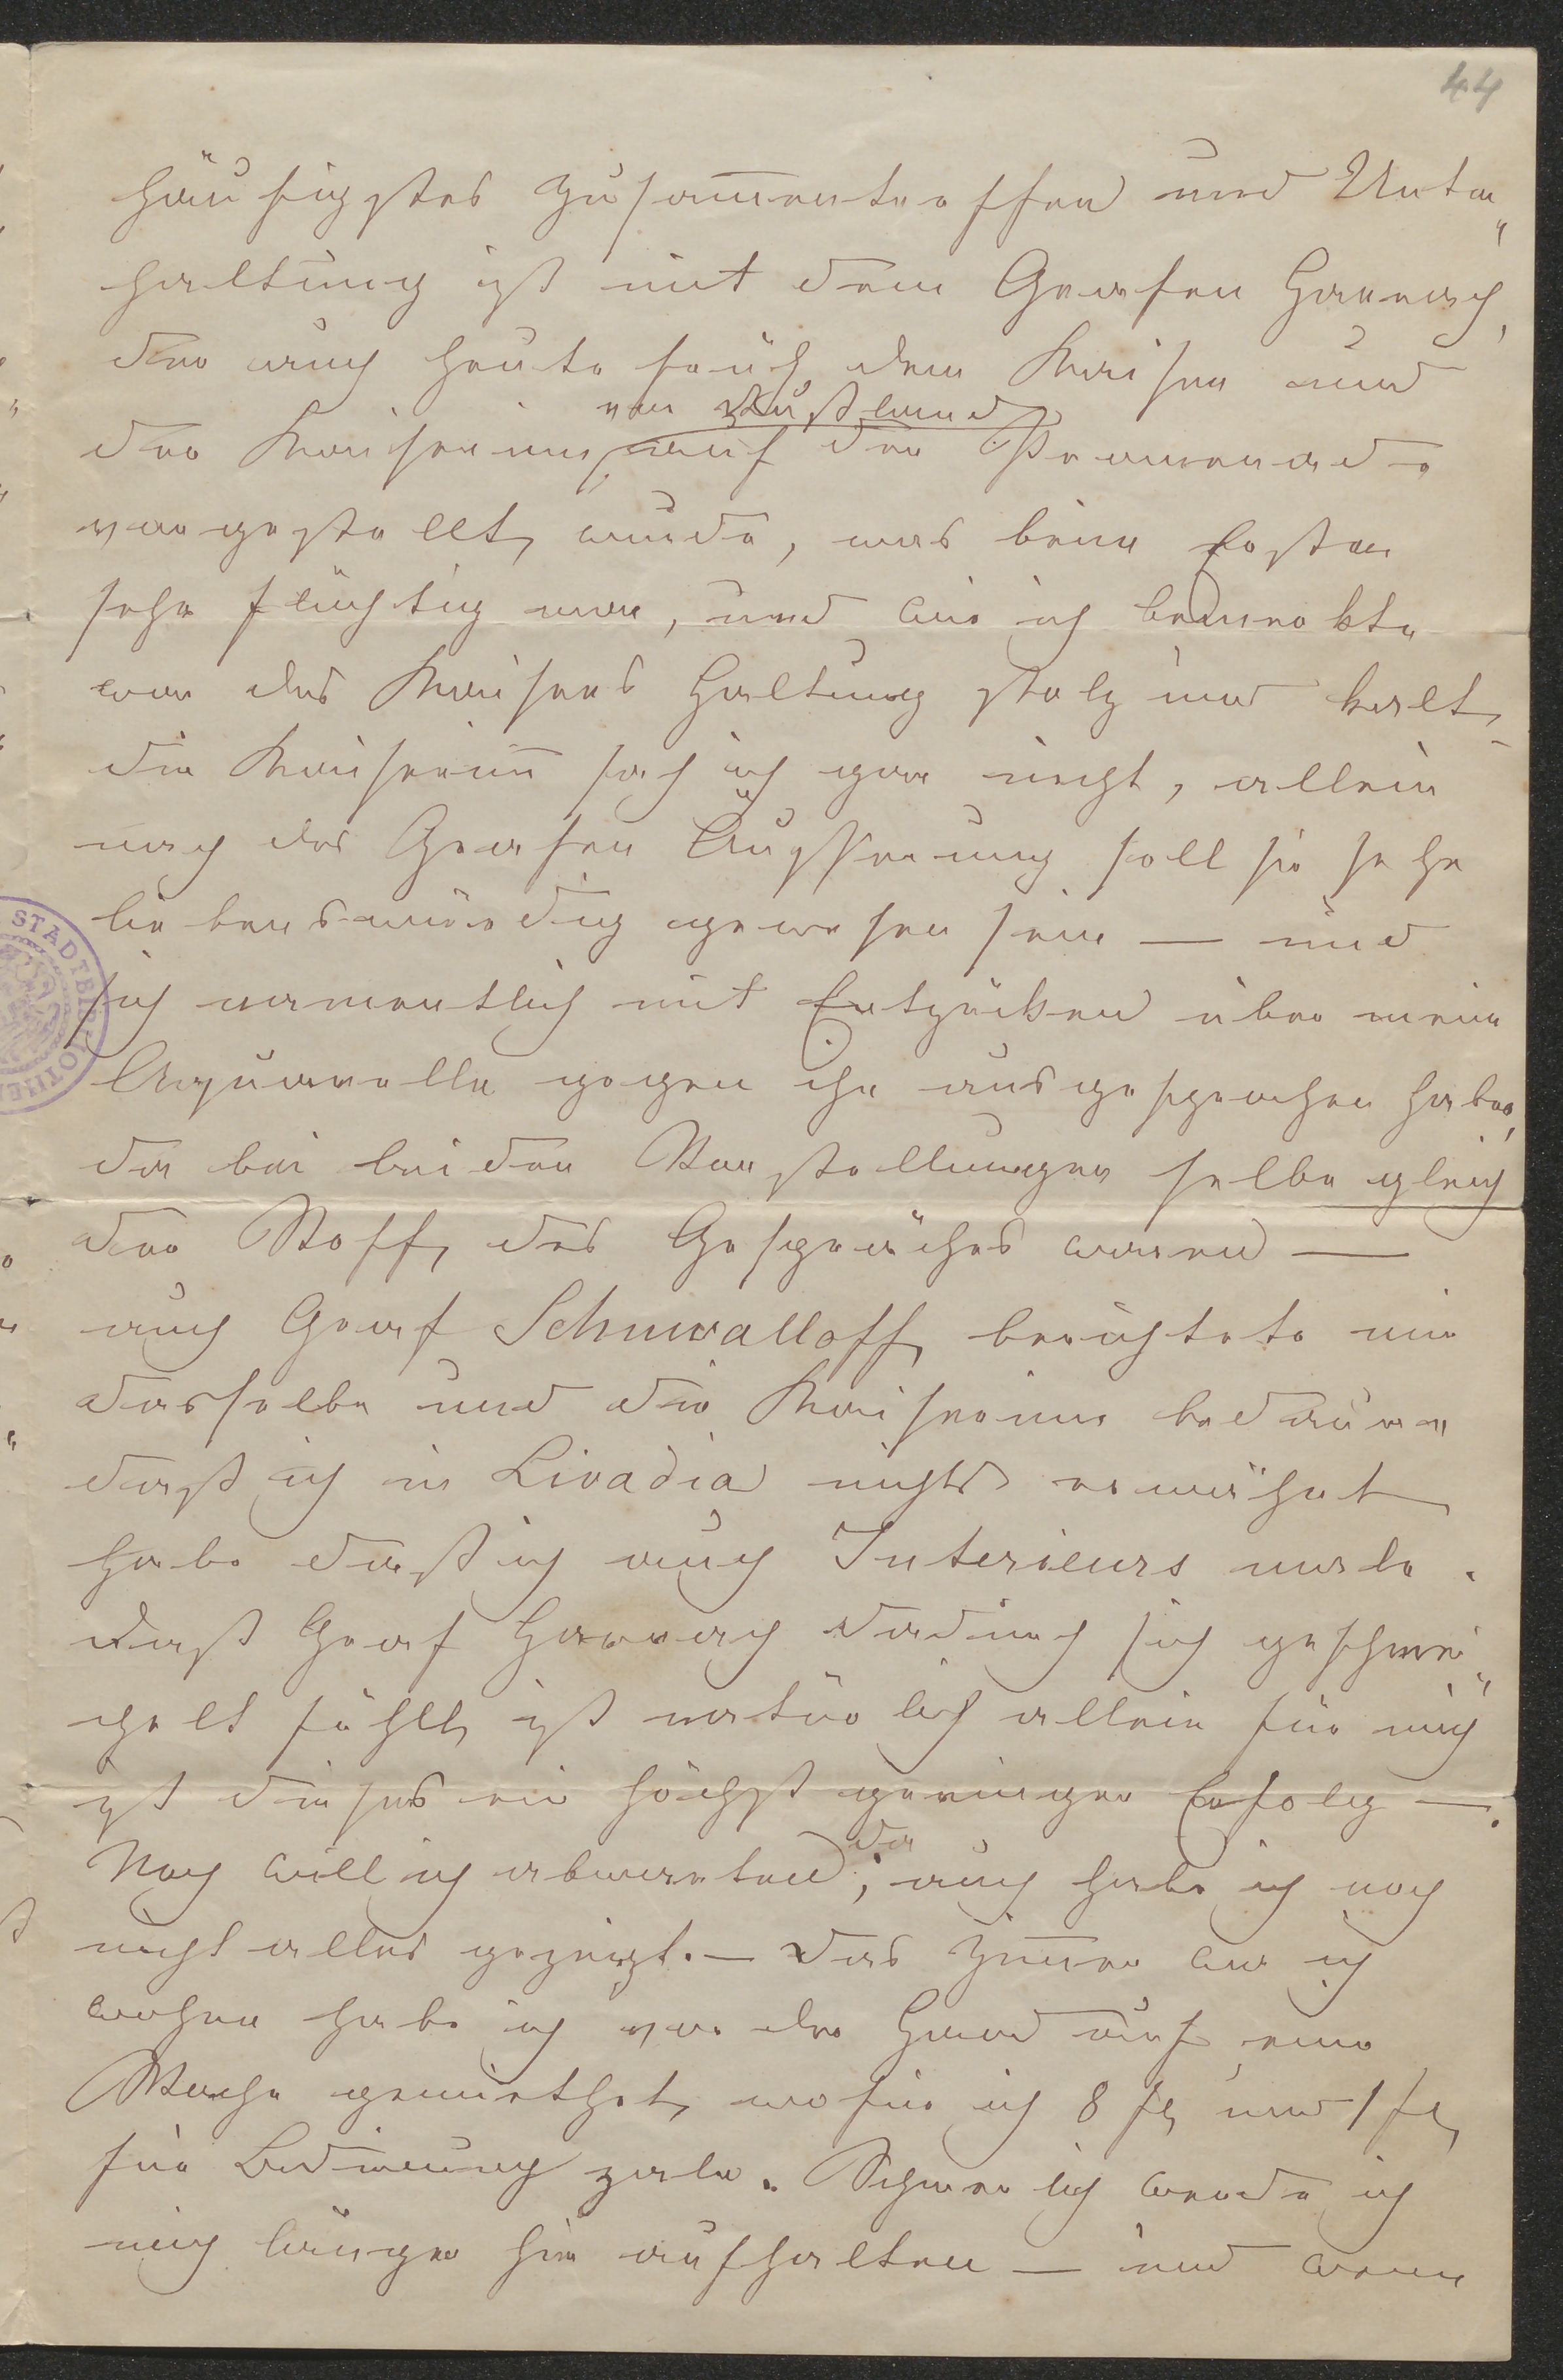 44
häufigstes Zusam̅entreffen und Unter„
haltung ist mit dem Grafen Harrach,
der auch heute früh dem Kaiser und
von Rußland
der Kaiserinn, auf der Promenade
vorgestellt wurde, was beim Ersten
sehr flüchtig war, und wie ich bemerkte
war des Kaisers Haltung stolz und kalt,
die Kaiserin̅ sah ich gar nicht, allein
nach des Grafen Äußerung soll sie sehr
liebenswürdig gewesen sein — und
sich namentlich mit Entzücken über meine
Aquarelle gegen ihn ausgesprochen haben,
da bei beiden Vorstellungen selbe gleich
der Stoff des Gespräches waren —
auch Graf Schuwalloff berichtete mir
dasselbe und die Kaiserinn bedaure„
daß ich in Livadia nichts erwähnt
habe daß ich auch Interieurs male.
daß Graf Harrach dadurch sich geschmei„
chelt fühlt, ist natürlich allein für mich
ist dieses ein höchst geringer Erfolg —.
Noch will ich abwarten, da auch habe ich noch
nicht alles gezeigt. — Das Zim̅er wo ich
wohne habe ich vor der Hand auf eine
Woche gemiethet, wofür ich 8 fl, und 1 fl,
für Bedienung zale. Schwerlich werde ich
mich länger hier aufhalten — und wenn
STADTBIBLIOTHEK